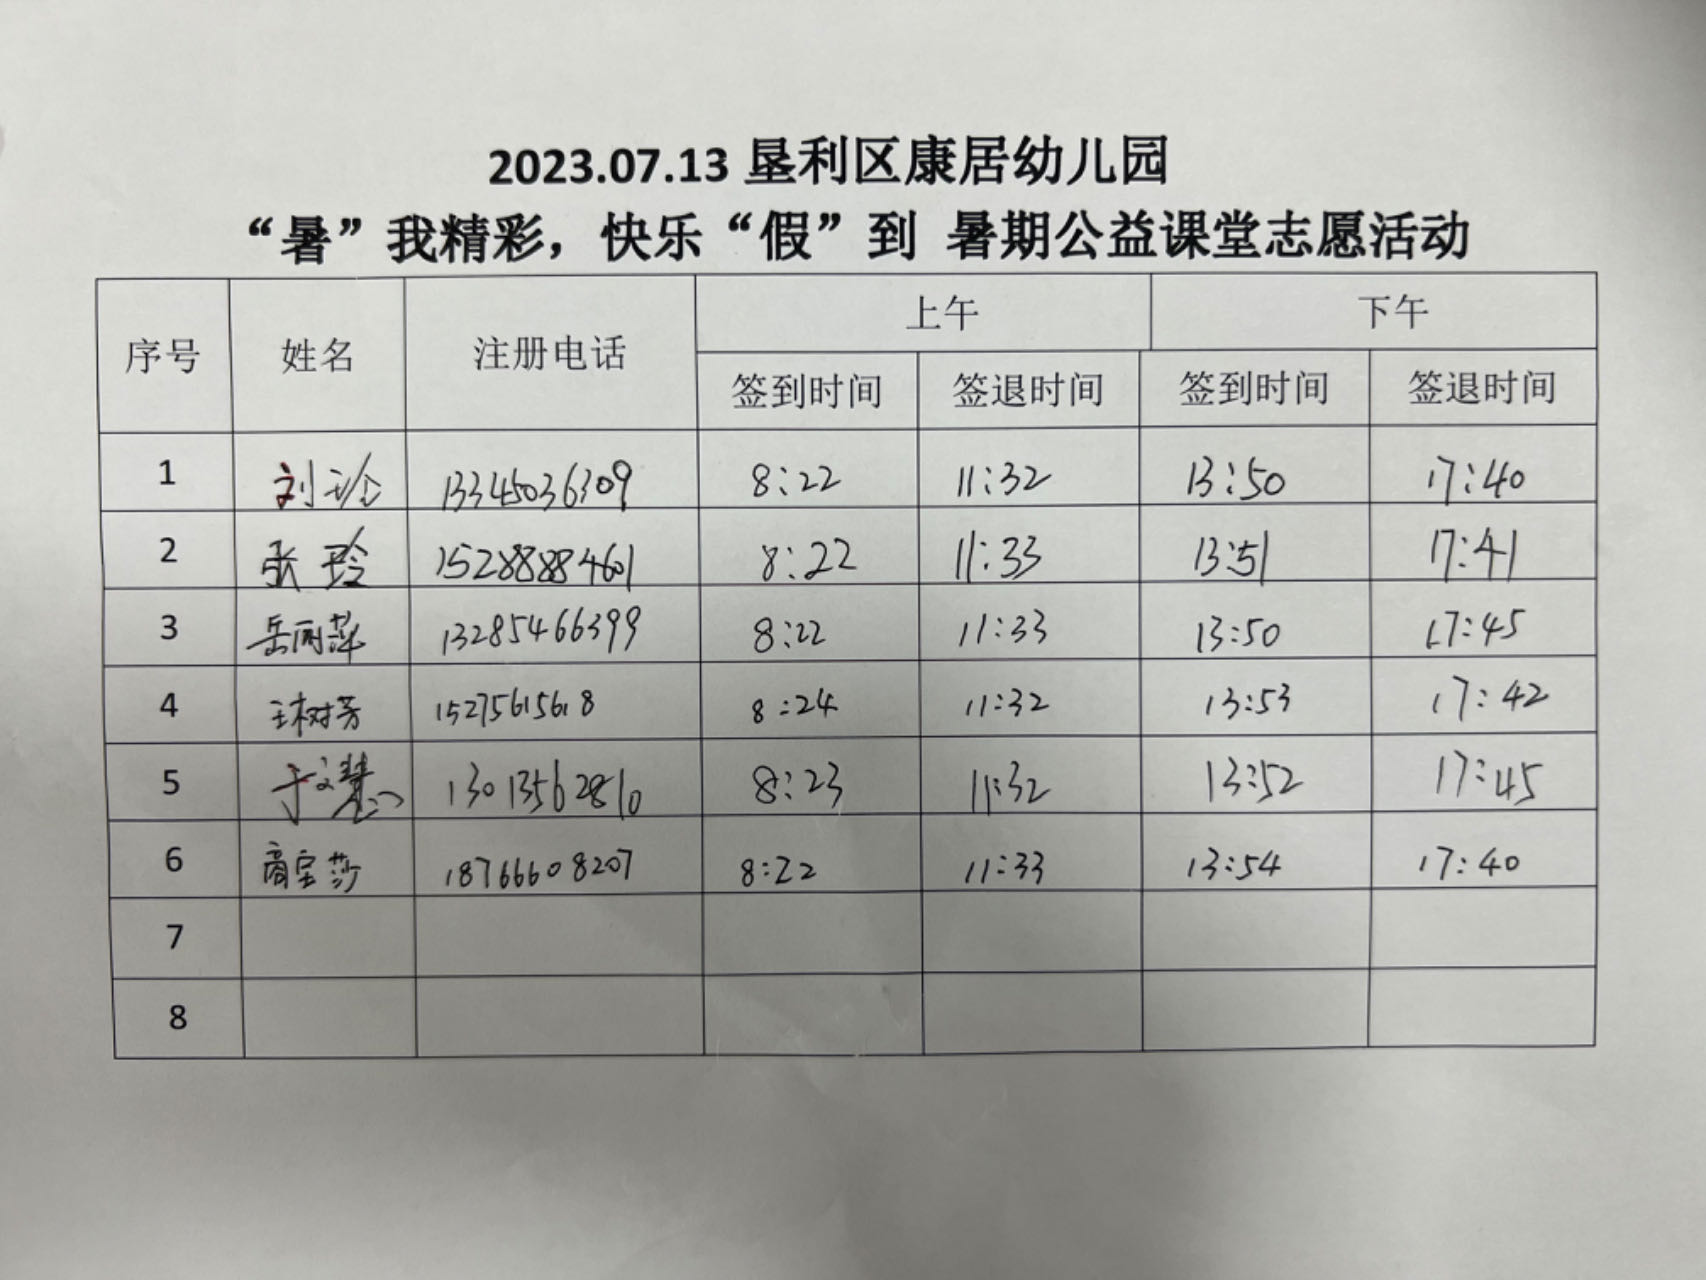 2023.07.13 垦利区康居幼儿园
“暑”我精彩，快乐“假”到 暑期公益课堂志愿活动
序号 姓名 注册电话 上午 下午
签到时间 签退时间 签到时间 签退时间
1 刘玲 13345036309 8:22 11:32 13:50 17:40
2 张玲 15288884601 8:22 11:33 13:51 17:41
3 岳丽萍 13285466399 8:22 11:33 13:50 17:45
4 王树芳 15275615618 8:24 11:32 13:53 17:42
5 于文慧 13013562810 8:23 11:32 13:52 17:45
6 商宝莎 18766608207 8:22 11:33 13:54 17:40
7
8